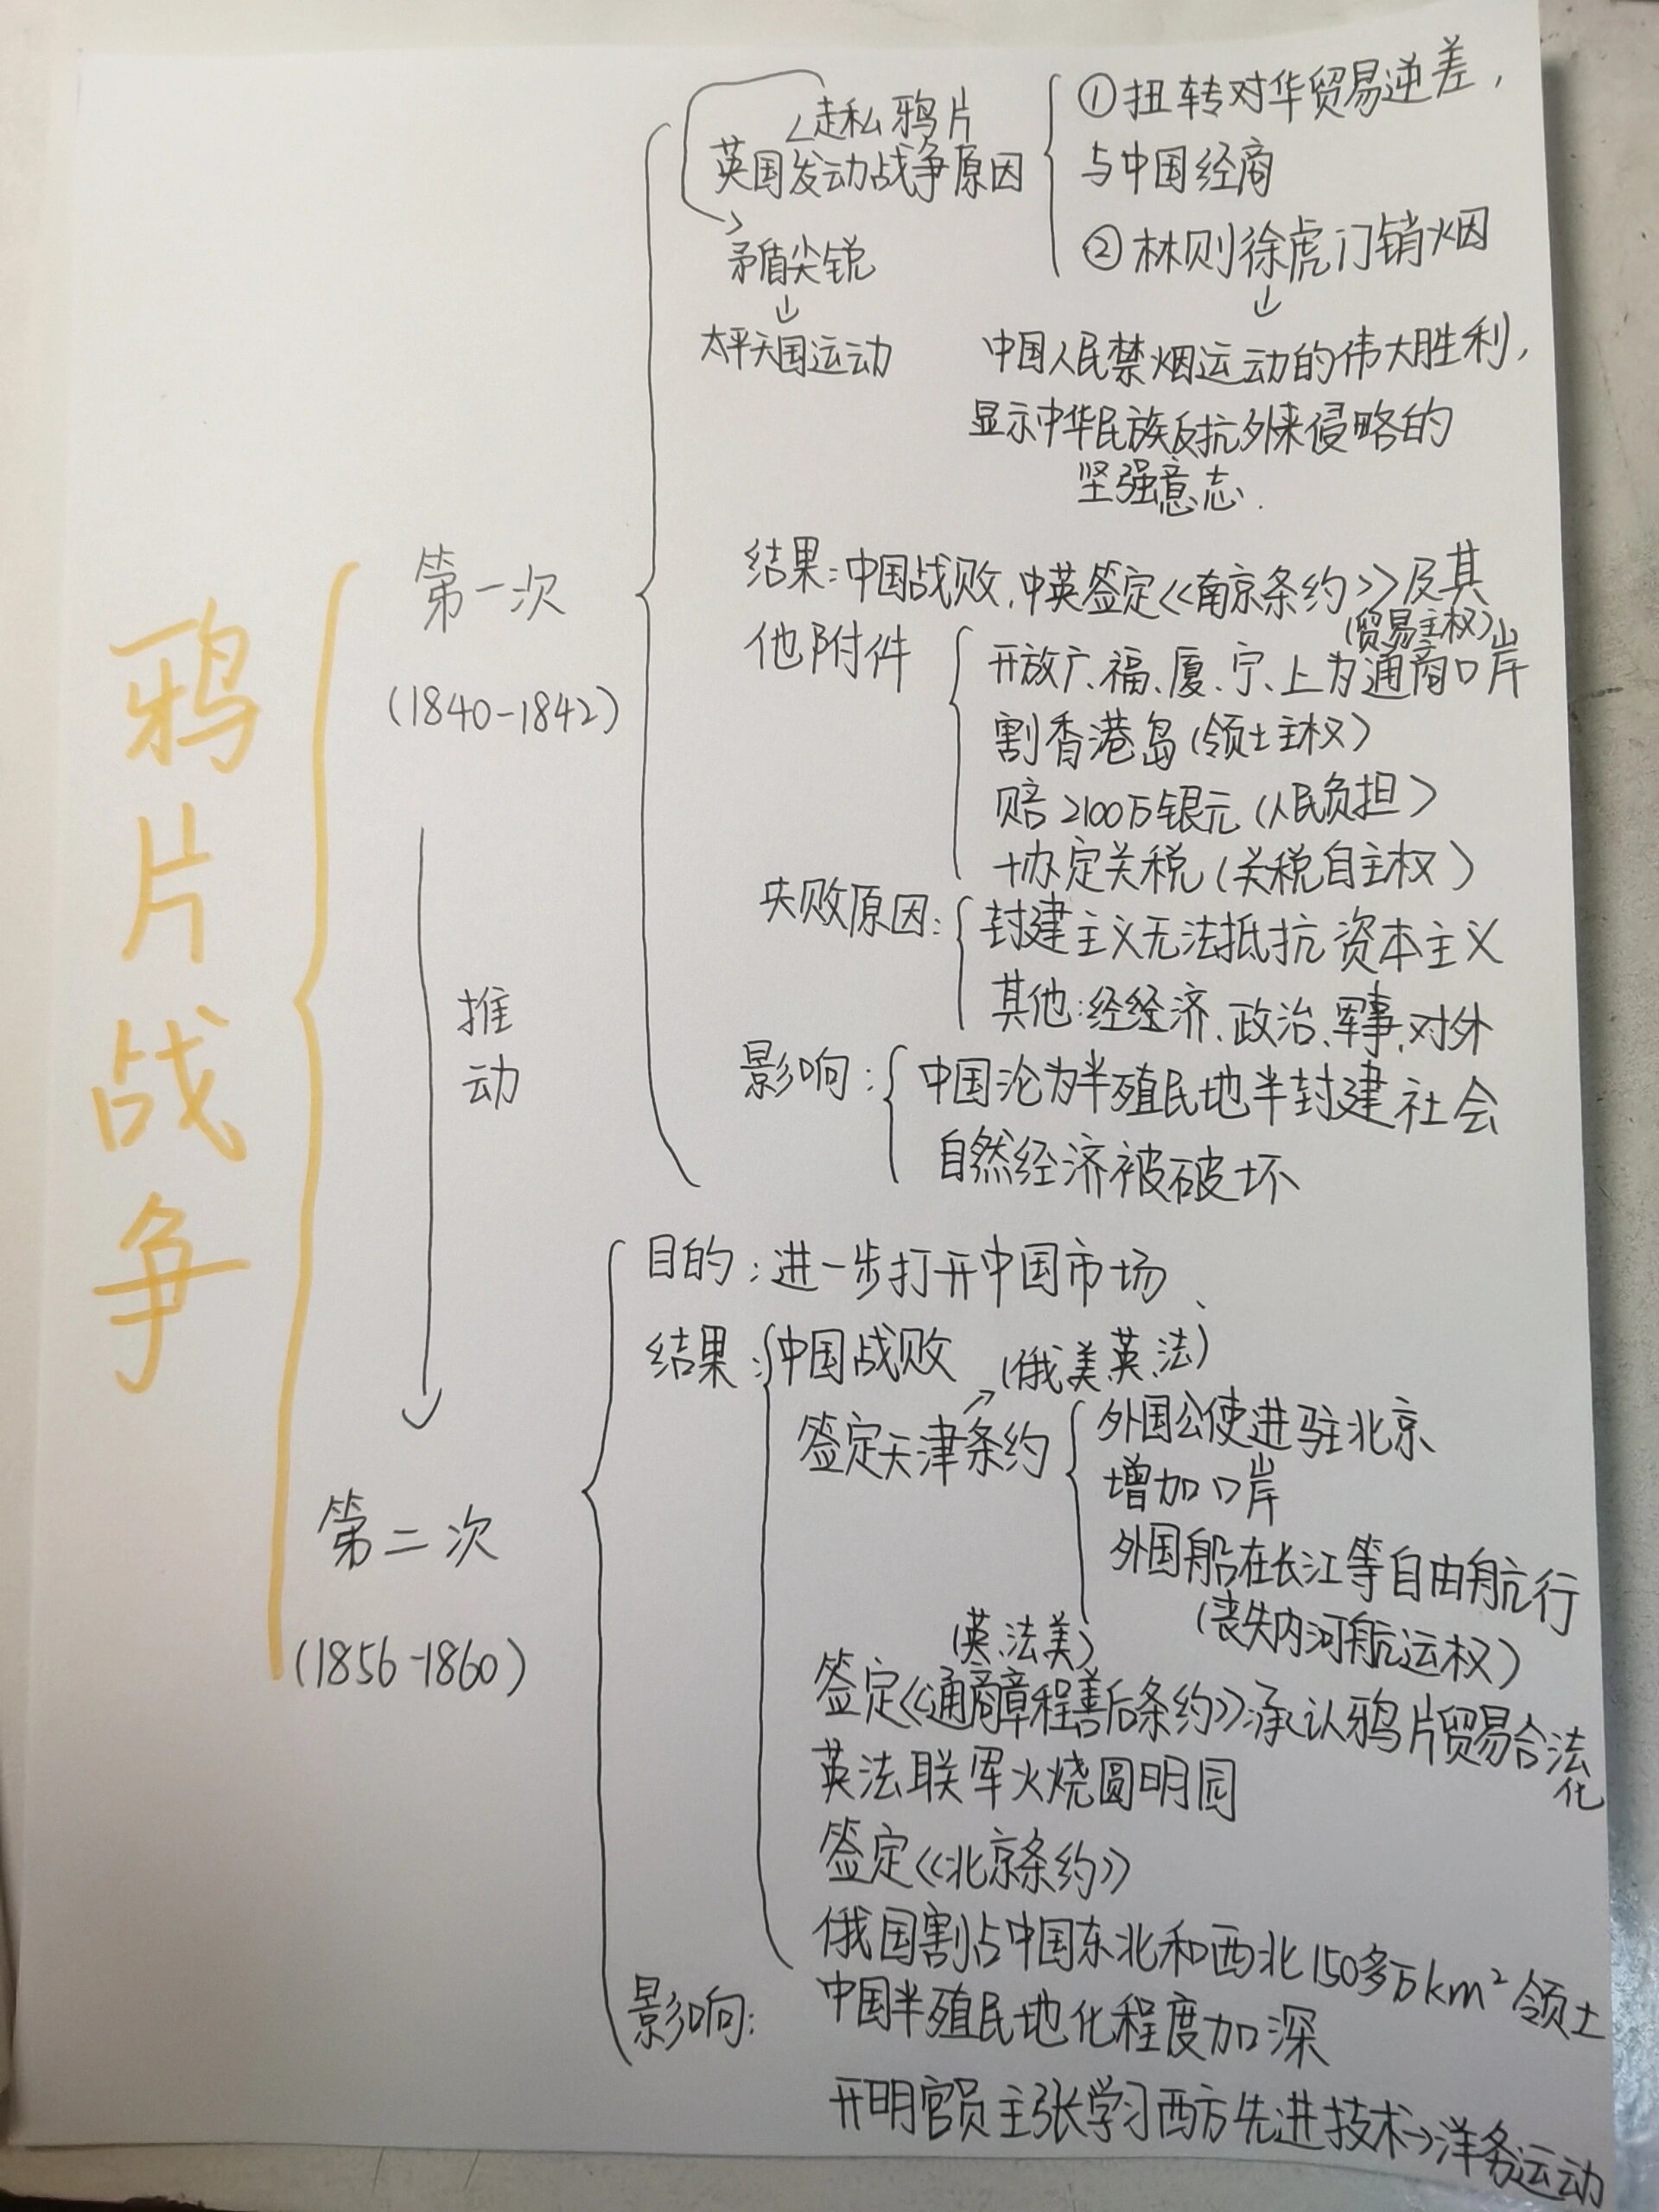 鸦片战争
第一次
(1840-1842)
推动
第二次
(1856-1860)
<走私鸦片
英国发动战争原因
矛盾尖锐
↓
太平天国运动
①扭转对华贸易逆差,
与中国经商
②林则徐虎门销烟
↓
中国人民禁烟运动的伟大胜利,
显示中华民族反抗外来侵略的
坚强意志.
结果:中国战败,中英签定《南京条约》及其
他附件
(贸易主权)
开放广、福、厦、宁、上为通商口岸
割香港岛(领土主权)
赔2100万银元(人民负担)
协定关税(关税自主权)
失败原因:
封建主义无法抵抗资本主义
其他:经经济、政治、军事、对外
影响:
中国沦为半殖民地半封建社会
自然经济被破坏
目的:进一步打开中国市场
结果:中国战败
(俄美英法)
签定天津条约
外国公使进驻北京
增加口岸
外国船在长江等自由航行
(丧失内河航运权)
(英法美)
签定《通商章程善后条约》:承认鸦片贸易合法化
英法联军火烧圆明园
签定《北京条约》
俄国割占中国东北和西北150多万km²领土
影响:
中国半殖民地化程度加深
开明官员主张学习西方先进技术→洋务运动